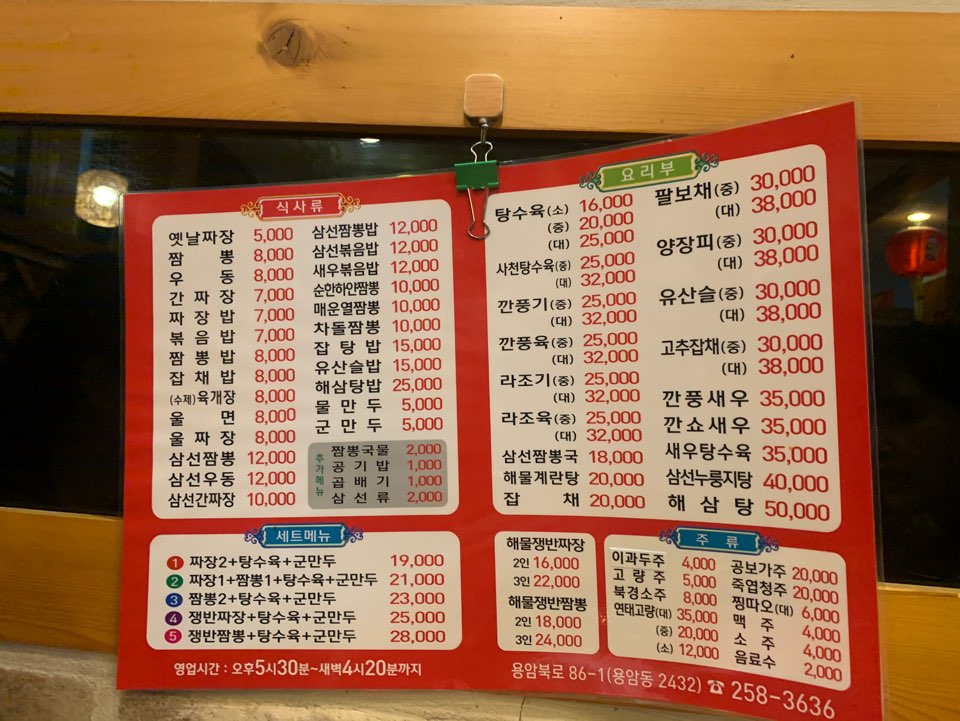 식사류
옛날짜장 5,000
짬뽕 8,000
우동 8,000
간짜장 7,000
짜장밥 7,000
볶음밥 7,000
짬뽕밥 8,000
잡채밥 8,000
(수제)육개장 8,000
울면 8,000
울짜장 8,000
삼선짬뽕 12,000
삼선우동 12,000
삼선간짜장 10,000
삼선짬뽕밥 12,000
삼선볶음밥 12,000
새우볶음밥 12,000
순한하얀짬뽕 10,000
매운열짬뽕 10,000
차돌짬뽕 10,000
잡탕밥 15,000
유산슬밥 15,000
해삼탕밥 25,000
물만두 5,000
군만두 5,000
추가메뉴
짬뽕국물 2,000
공기밥 1,000
곱배기 1,000
삼선류 2,000
요리부
탕수육(소) 16,000
(중) 20,000
(대) 25,000
사천탕수육(중) 25,000
(대) 32,000
깐풍기(중) 25,000
(대) 32,000
깐풍육(중) 25,000
(대) 32,000
라조기(중) 25,000
(대) 32,000
라조육(중) 25,000
(대) 32,000
삼선짬뽕국 18,000
해물계란탕 20,000
잡채 20,000
팔보채(중) 30,000
(대) 38,000
양장피(중) 30,000
(대) 38,000
유산슬(중) 30,000
(대) 38,000
고추잡채(중) 30,000
(대) 38,000
깐풍새우 35,000
깐쇼새우 35,000
새우탕수육 35,000
삼선누룽지탕 40,000
해삼탕 50,000
세트메뉴
1 짜장2+탕수육+군만두 19,000
2 짜장1+짬뽕1+탕수육+군만두 21,000
3 짬뽕2+탕수육+군만두 23,000
4 쟁반짜장+탕수육+군만두 25,000
5 쟁반짬뽕+탕수육+군만두 28,000
해물쟁반짜장
2인 16,000
3인 22,000
해물쟁반짬뽕
2인 18,000
3인 24,000
주류
이과두주 4,000
고량주 5,000
북경소주 8,000
연태고량(대) 35,000
(중) 20,000
(소) 12,000
공보가주 20,000
죽엽청주 20,000
찡따오(대) 6,000
맥주 4,000
소주 4,000
음료수 2,000
영업시간 : 오후5시30분~새벽4시20분까지
용암북로 86-1(용암동 2432) ☎ 258-3636